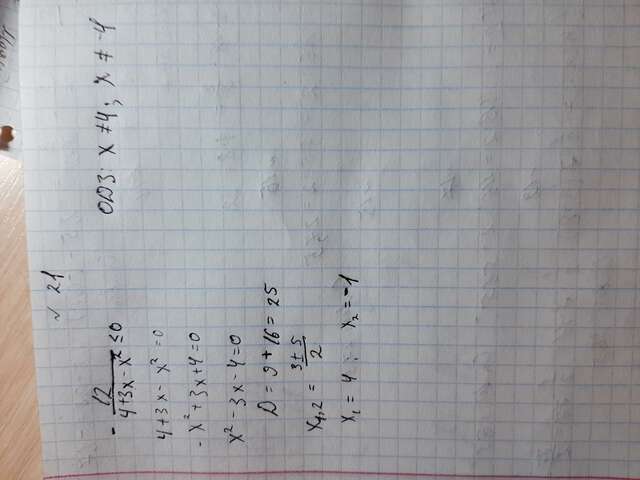 √ 21
- 12/(4+3x-x²) ≤ 0 ОДЗ: x ≠ 4; x ≠ -4
4+3x-x²=0
-x²+3x+4=0
x²-3x-4=0
D=9+16=25
x₁,₂ = (3±5)/2
x₁=4; x₂=-1